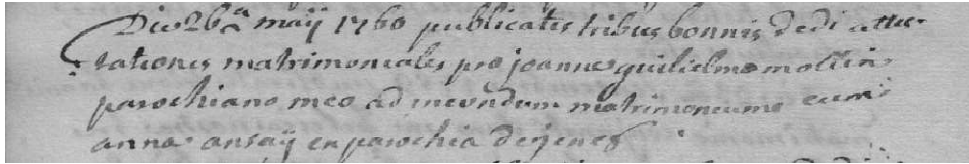 Die 26a maij 1760 publicatis tribus bonnis dedi attes-
tationes matrimoniales pro joanne guilielmo mollin
parochiano meo ad ineundum matrimonium cum
anna ansaij ex parochia dejenef